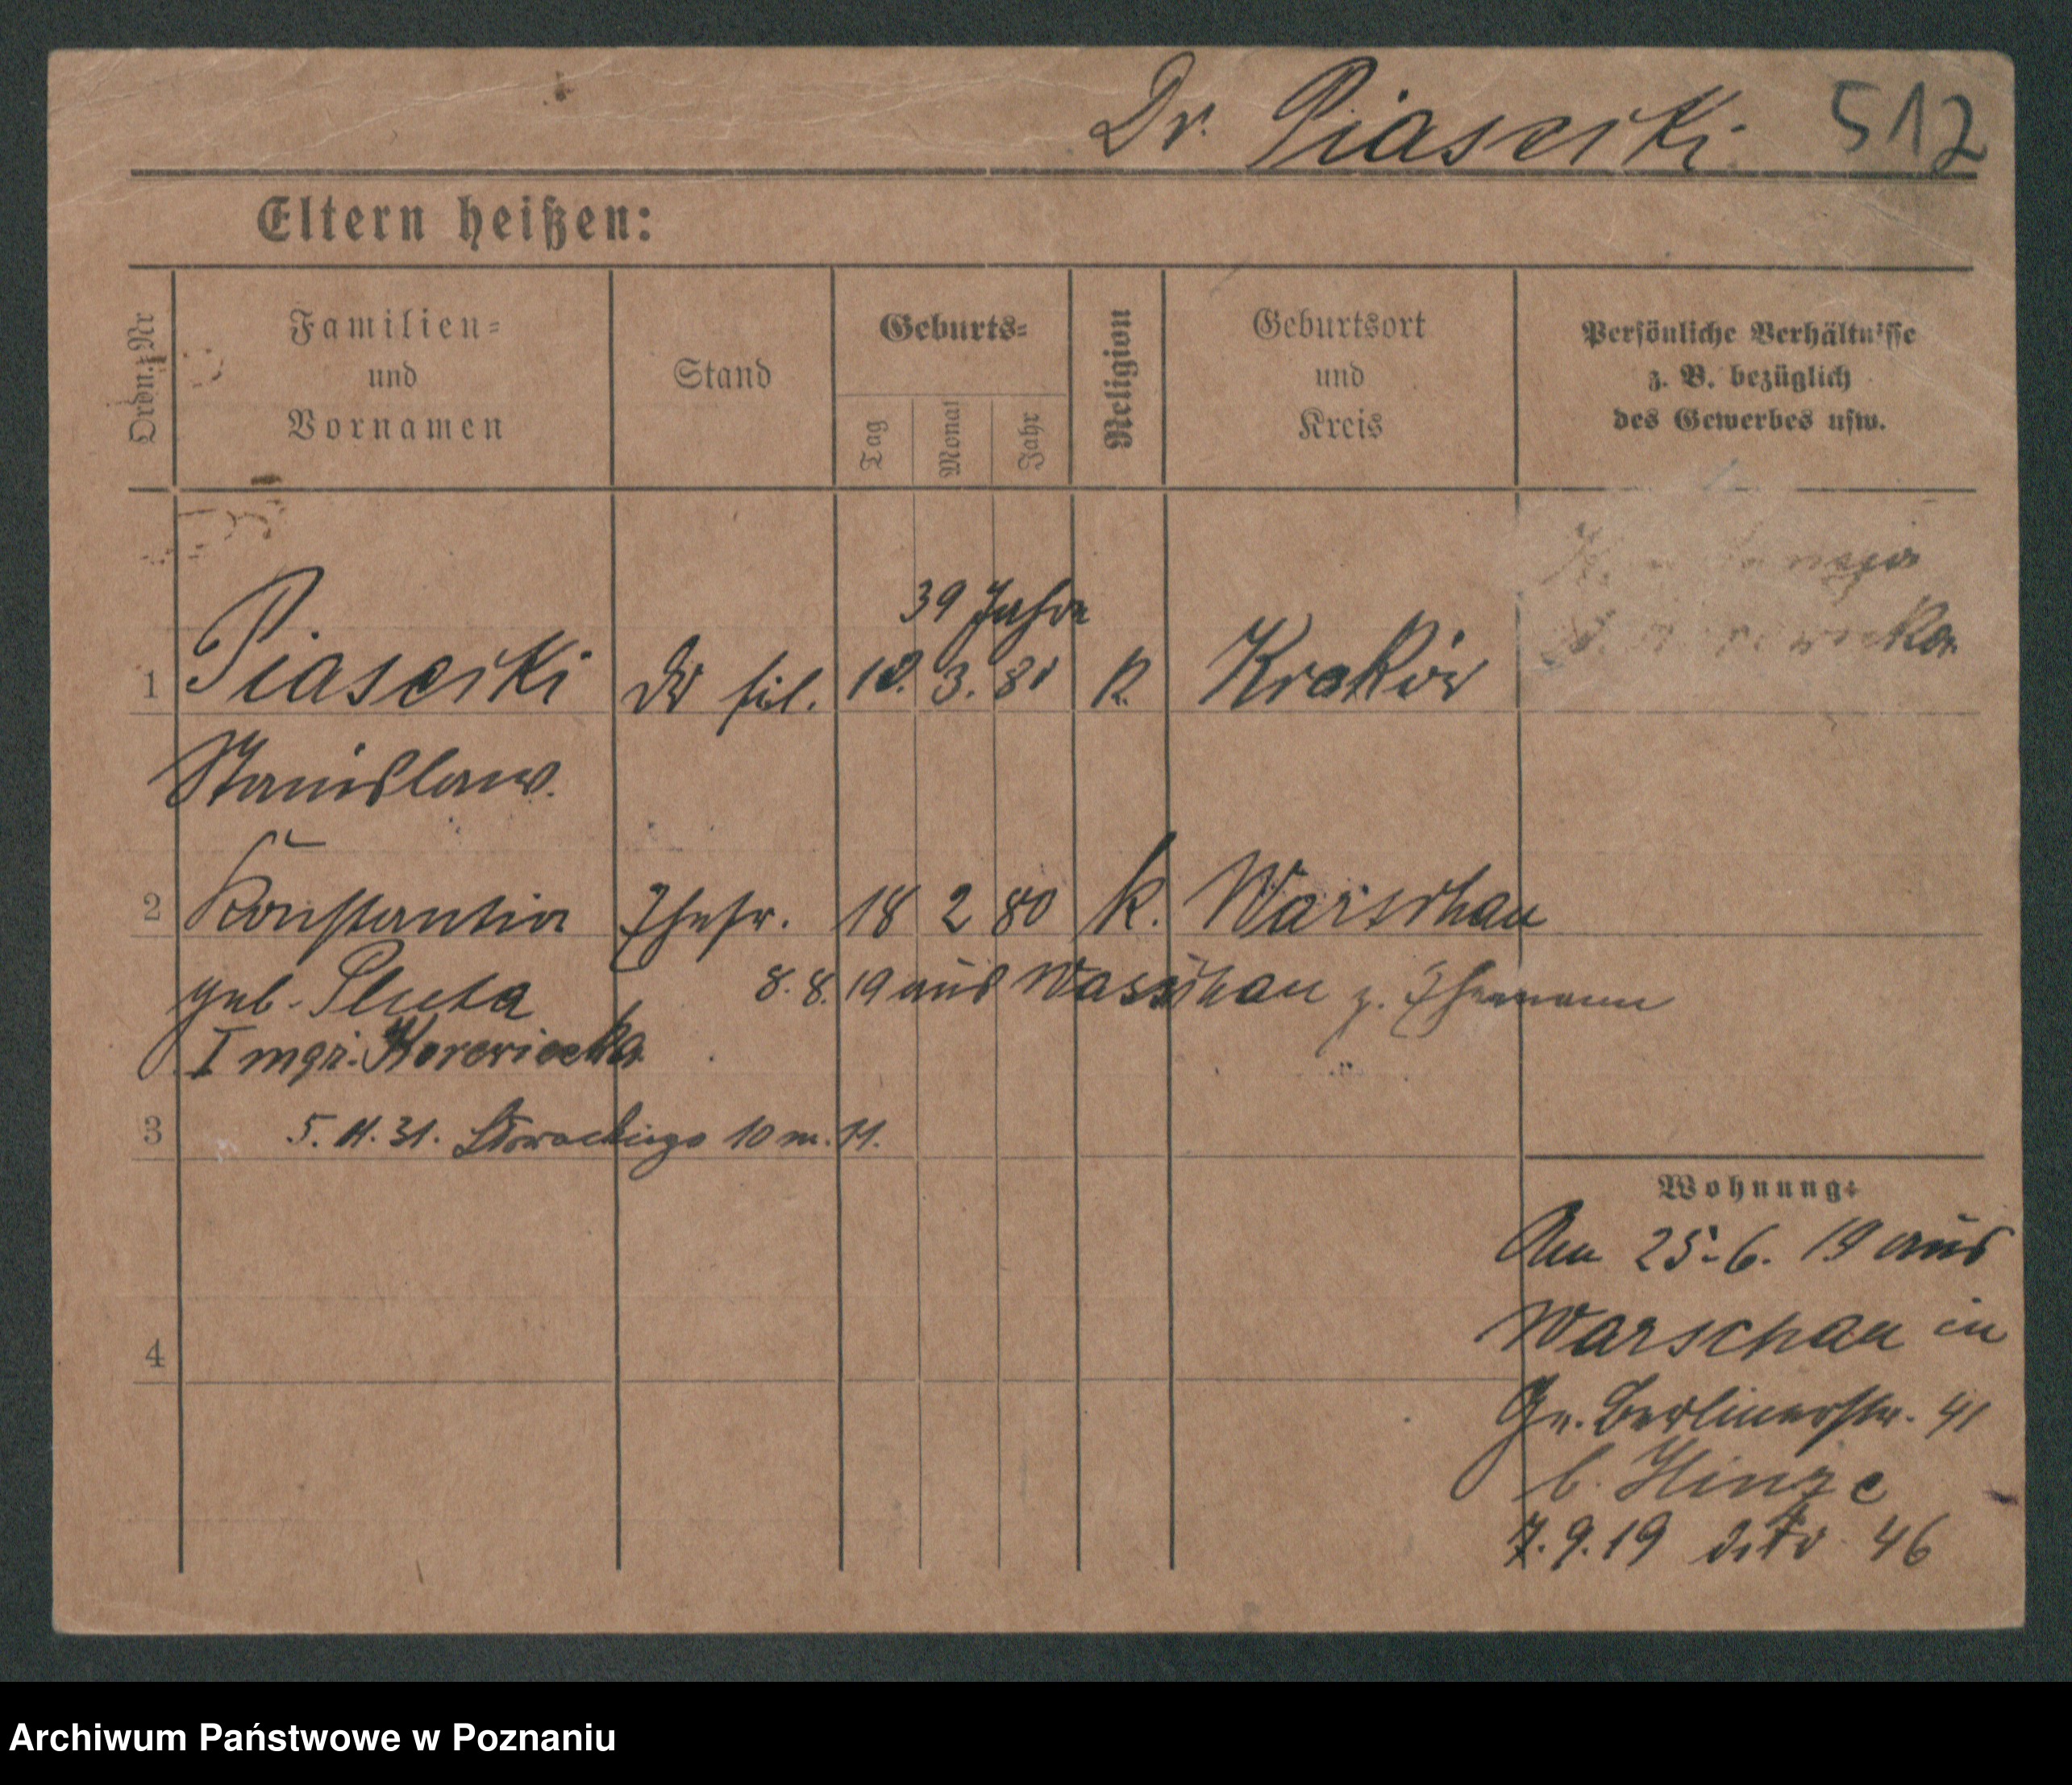 Dr. Piasecki 512
Eltern heißen:
Ordn.-Nr
Familien-
und
Vornamen
Stand
Geburts-
Tag
Monat
Jahr
Religion
Geburtsort
und
Kreis
Persönliche Verhältnisse
z. B. bezüglich
des Gewerbes usw.
39 Jahre
1 Piasecki Dr fil. 3. 80 K. Kraków
Stanislaw.
2 Konstantia Ehefr. 18 2 80 K. Warschau
geb. Pluta 8. 8. 19 aus Warschau z. Ehemann
I
3 5. 11. 31. Słowackiego 10 m. 11.
Wohnung:
Am 25. 6. 19 aus
Warschau in
Gr. Berlinerstr. 41
b. Hinze
4
7. 9. 19 dito 46
Archiwum Państwowe w Poznaniu